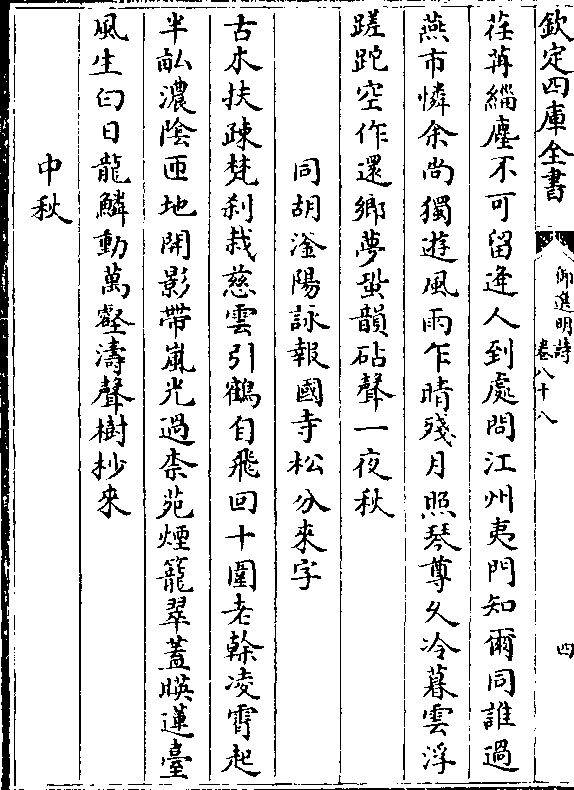 欽定四庫全書
御選明詩
卷八十八
四
荏苒緇塵不可留逢人到處問江州夷門知爾同誰過
燕市憐余尚獨遊風雨乍晴殘月照琴尊久冷暮雲浮
蹉跎空作還鄉夢蛩韻砧聲一夜秋
同胡滏陽詠報國寺松分來字
古木扶疎梵刹栽慈雲引鶴自飛回十圍老榦凌霄起
半畝濃陰匝地開影帶嵐光過柰苑煙籠翠蓋暎蓮臺
風生白日龍鱗動萬壑濤聲樹杪來
中秋